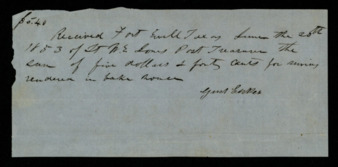 $5.40
Received Fort Texas June the 20th
1853 of Lt Jones Post Treasurer the
sum of five dollars & forty cents for
rendered in bake house